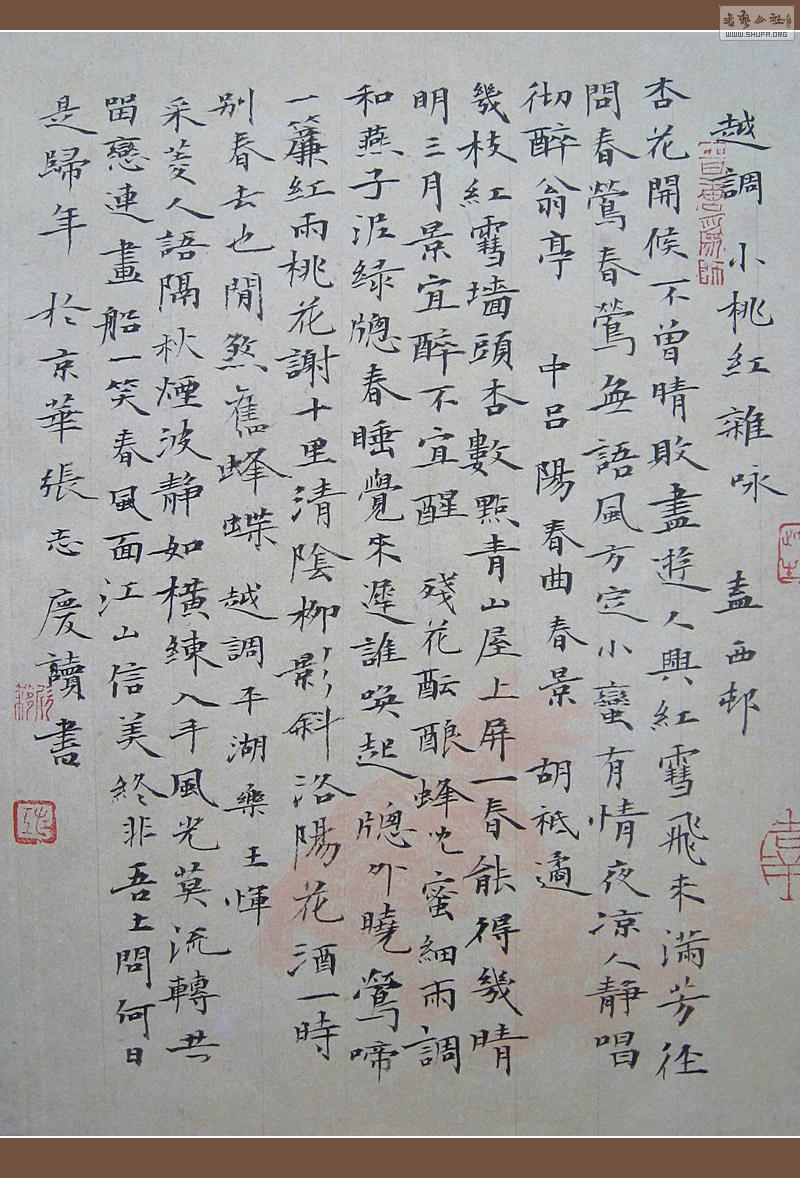 越調 小桃紅雜咏 盍西邨
杏花開候不曾晴敗盡遊人興紅雪飛来滿芳徑
問春鶯春鶯無語風方定小蠻有情夜凉人静唱
彻醉翁亭 中吕陽春曲春景 胡祗遹
幾枝紅雪墙頭杏數點青山屋上屏一春能得幾晴
明三月景宜醉不宜醒 殘花酝酿蜂児蜜細雨調
和燕子泥緑牕春睡覺来遲誰唤起牕外曉鶯啼
一簾紅雨桃花謝十里清陰柳影斜洛陽花酒一時
别春去也閒煞舊蜂蝶 越調平湖樂王惲
采菱人語隔秋煙波静如横練入手風光莫流轉共
留戀連畫船一笑春風面江山信美終非吾土問何日
是歸年 於京華張志慶讀書
書藝公社
WWW.SHUFA.ORG